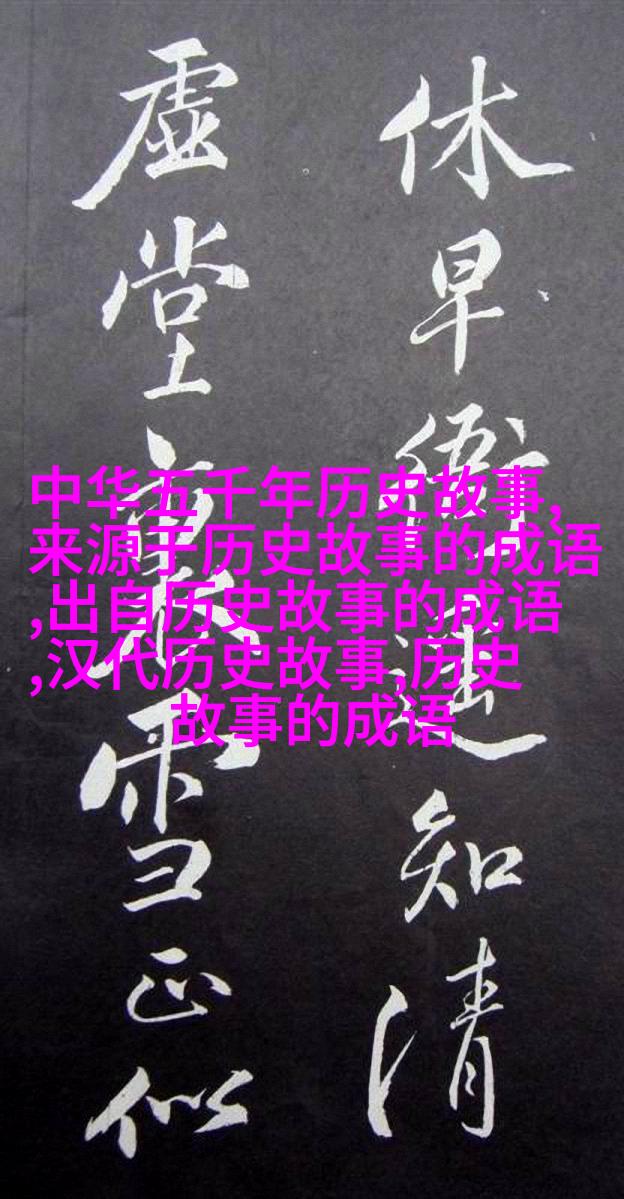 休早衙知清
虛堂雪正似
中华五千年历史故事,
来源于历史故事的成语
,出自历史故事的成语
,汉代历史故事,历史
故事的成语